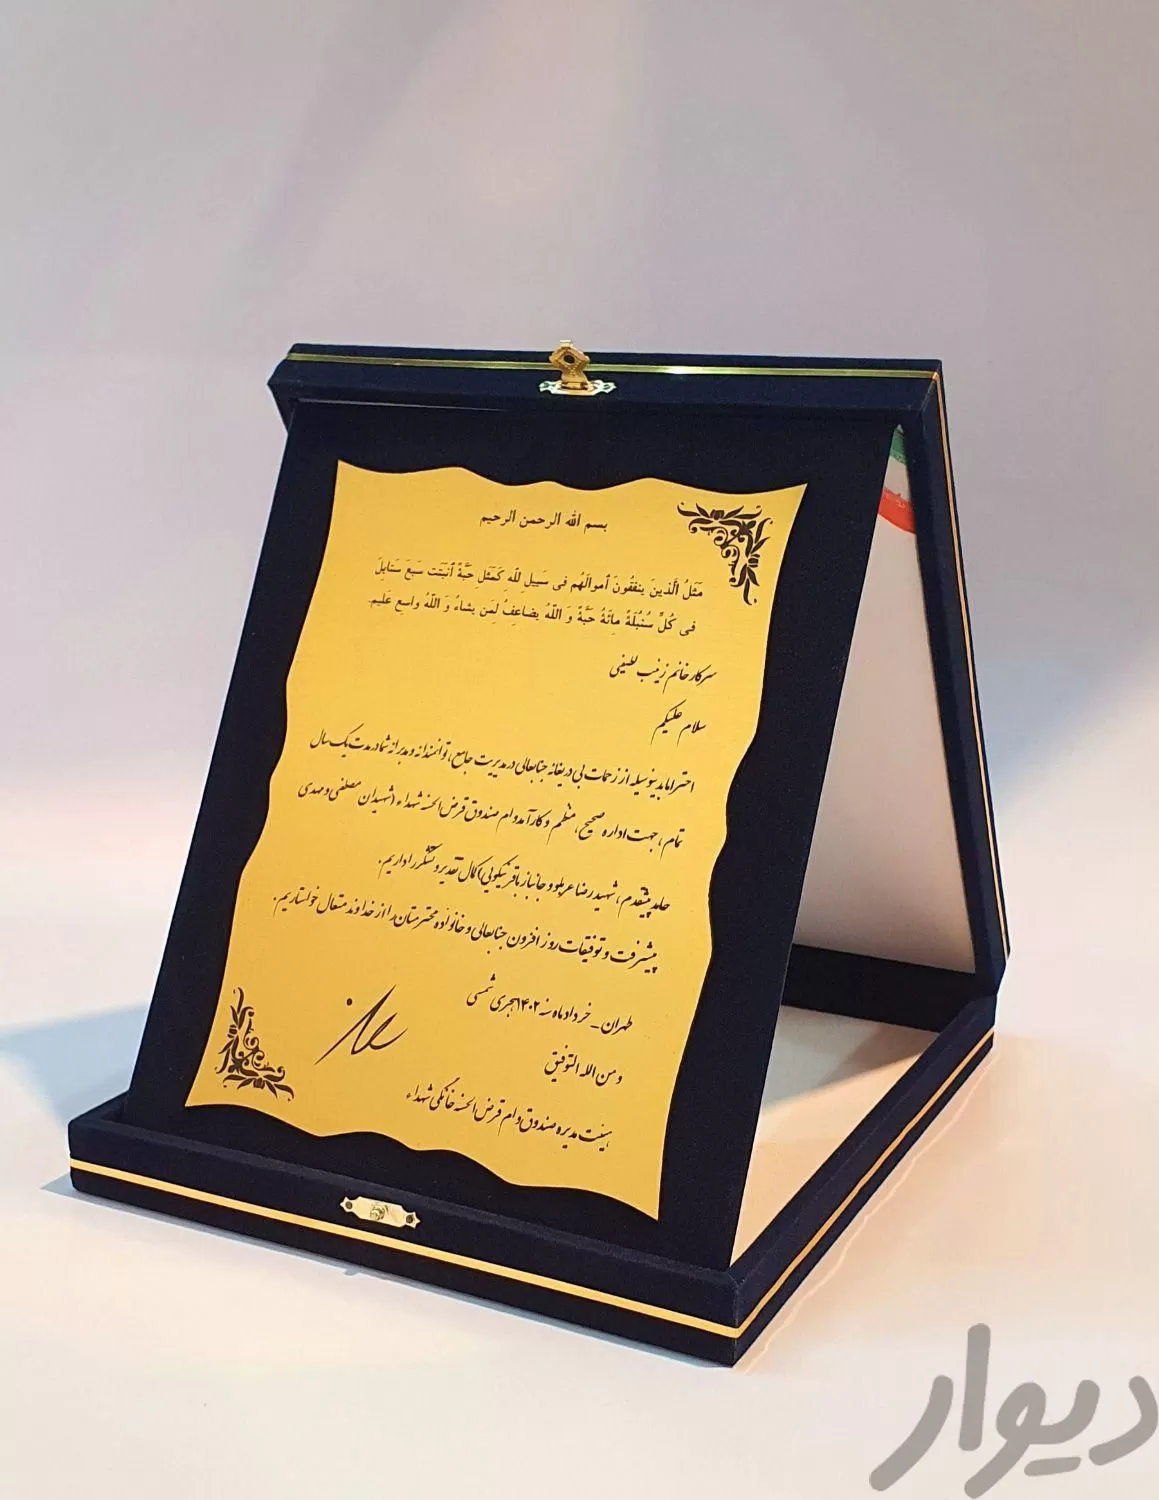 بسم الله الرحمن الرحیم
مَثَلُ الَّذینَ ینفقُونَ أموالَهُم فی سَبیلِ للّهِ کَمَثَلِ حَبَّةً أنبَتَت سَبعَ سَنابِلَ
فی کُلِّ سُنبُلَةً مِائَةُ حَبَّةً وَ اللّهُ یضاعِفُ لِمَن یشاءُ وَ اللّهُ واسِع عَلیم.
سرکار خانم زینب لطیفی
سلام علیکم
احتراما بدینوسیله از زحمات بی دریغانه جنابعالی در مدیریت جامع، توانمندانه و مدبرانه شما در مدت یک سال
تمام، جهت اداره صحیح، منظم و کارآمد وام صندوق قرض الحسنه شهداء (شهیدان مصطفی و مهدی
حامد پیشقدم، شهید رضا عربلو و جانباز باقر نیکویی) کمال تقدیر و تشکر را داریم.
پیشرفت و توفیقات روز افزون جنابعالی و خانواده محترمتان را از خداوند متعال خواستاریم.
طهران - خرداد ماه سنه ۱۴۰۲ هجری شمسی
و من الله التوفیق
هیئت مدیره صندوق وام قرض الحسنه خانگی شهداء
دیوار